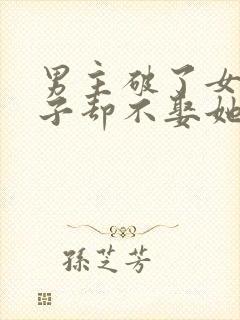 男主破了女
子却不娶她
孫芝芳